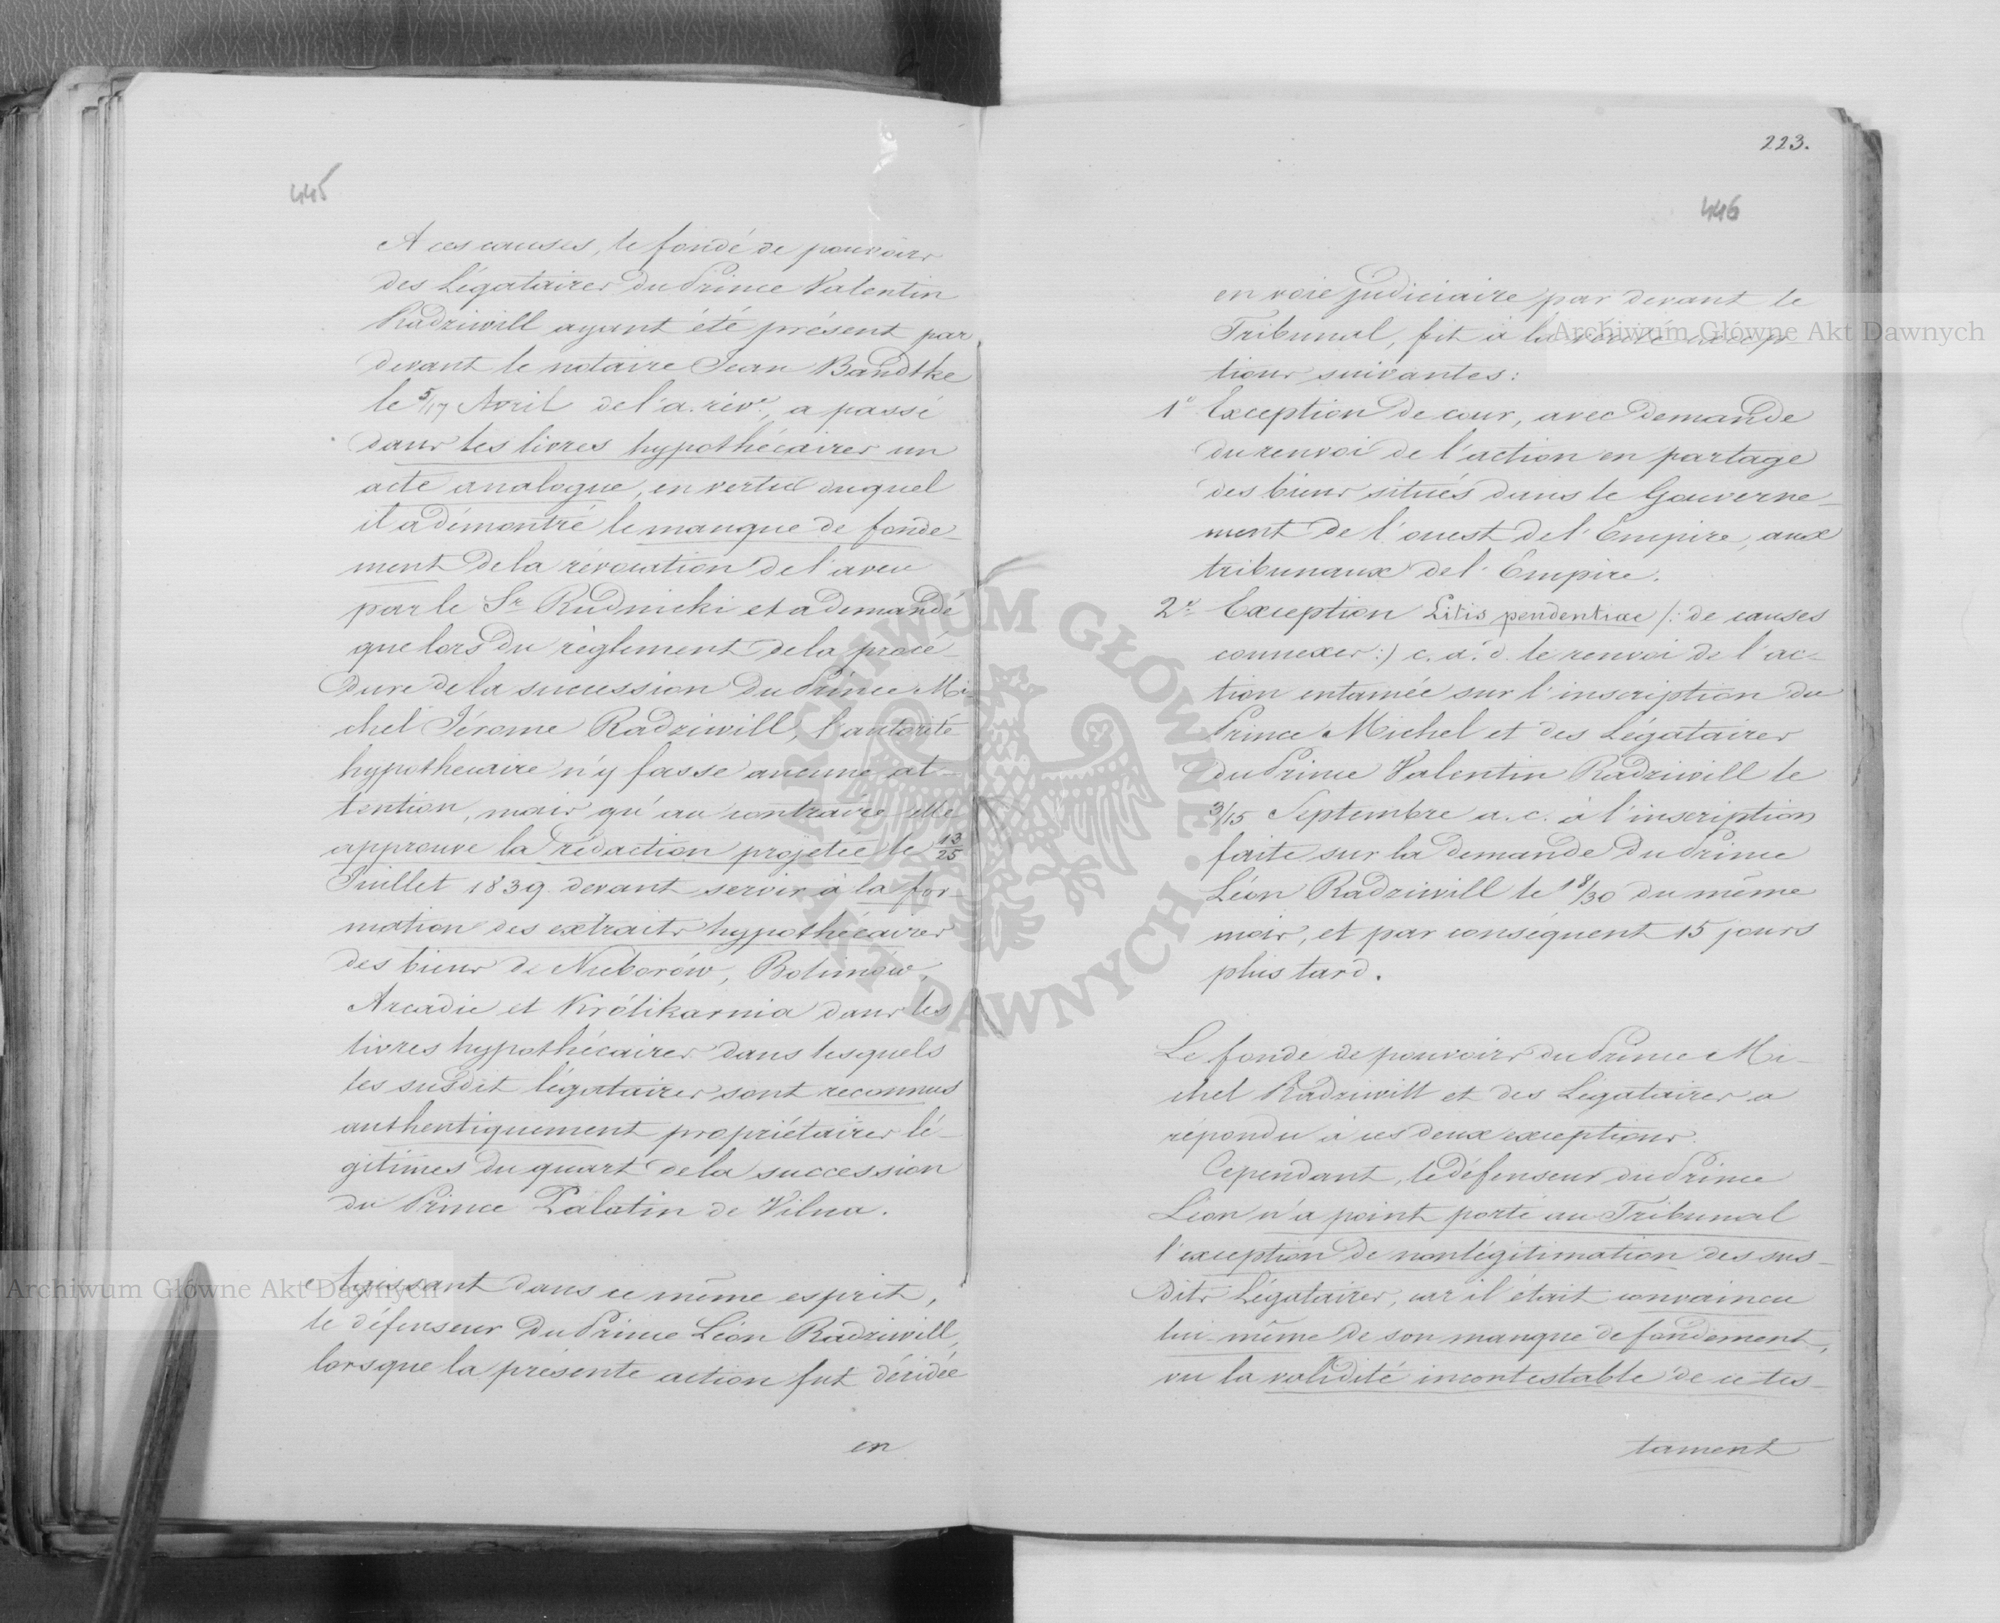 445
A ces causes, le fondé de pouvoirs
des Légataires du Prince Valentin
Radziwill ayant été présent par
devant le notaire Jean Bandtke
le 5/17 Avril de l'a. rév., a passé
dans les livres hypothécaires un
acte analogue, en vertu duquel
il a démontré le manque de fonde-
ment de la révocation de l'aveu
par le Sr Rudnicki et a demandé
que lors du règlement de la procé-
dure de la succession du Prince Mi-
chel Jérome Radziwill, l'autorité
hypothecaire n'y fasse aucune at-
tention, mais qu'au contraire elle
approuve la rédaction projetée le 13/25
Juillet 1839 devant servir à la for-
mation des extraits hypothécaires
des biens de Nieborów, Bolimow,
Arcadie et Królikarnia dans les
livres hypothécaires dans lesquels
les susdit légataires sont reconnus
authentiquement propriétaires lé-
gitimes du quart de la succession
du Prince Palatin de Vilna.
Agissant dans ce même esprit,
le défenseur du Prince Léon Radziwill,
lorsque la présente action fut décidée
en
223.
446
en voie judiciaire par devant le
Tribunal, fit à la
tions suivantes:
1° Exception de cour, avec demande
du renvoi de l'action en partage
des biens situés dans le Gouverne-
ment de l'ouest de l'Empire, aux
tribunaux de l'Empire.
2° Exception Litis pendentiae /: de causes
connexes :) c. à. d. le renvoi de l'ac-
tion entamée sur l'inscription du
Prince Michel et des Légataires
du Prince Valentin Radziwill le
3/15 Septembre a. c. à l'inscription
faite sur la demande du Prince
Léon Radziwill le 18/30 du même
mois, et par conséquent 15 jours
plus tard.
Le fondé de pouvoirs du Prince Mi-
chel Radziwill et des Légataires a
répondu à ces deux exceptions.
Cependant, le défenseur du Prince
Léon n'a point porté au Tribunal
l'exception de nonlégitimation des sus-
dits Légataires, car il était convaincu
lui-même de son manque de fondement,
vu la validité incontestable de ce tes-
tament
Archiwum Główne Akt Dawnych
Archiwum Główne Akt Dawnych
ARCHIWUM GŁÓWNE AKT DAWNYCH